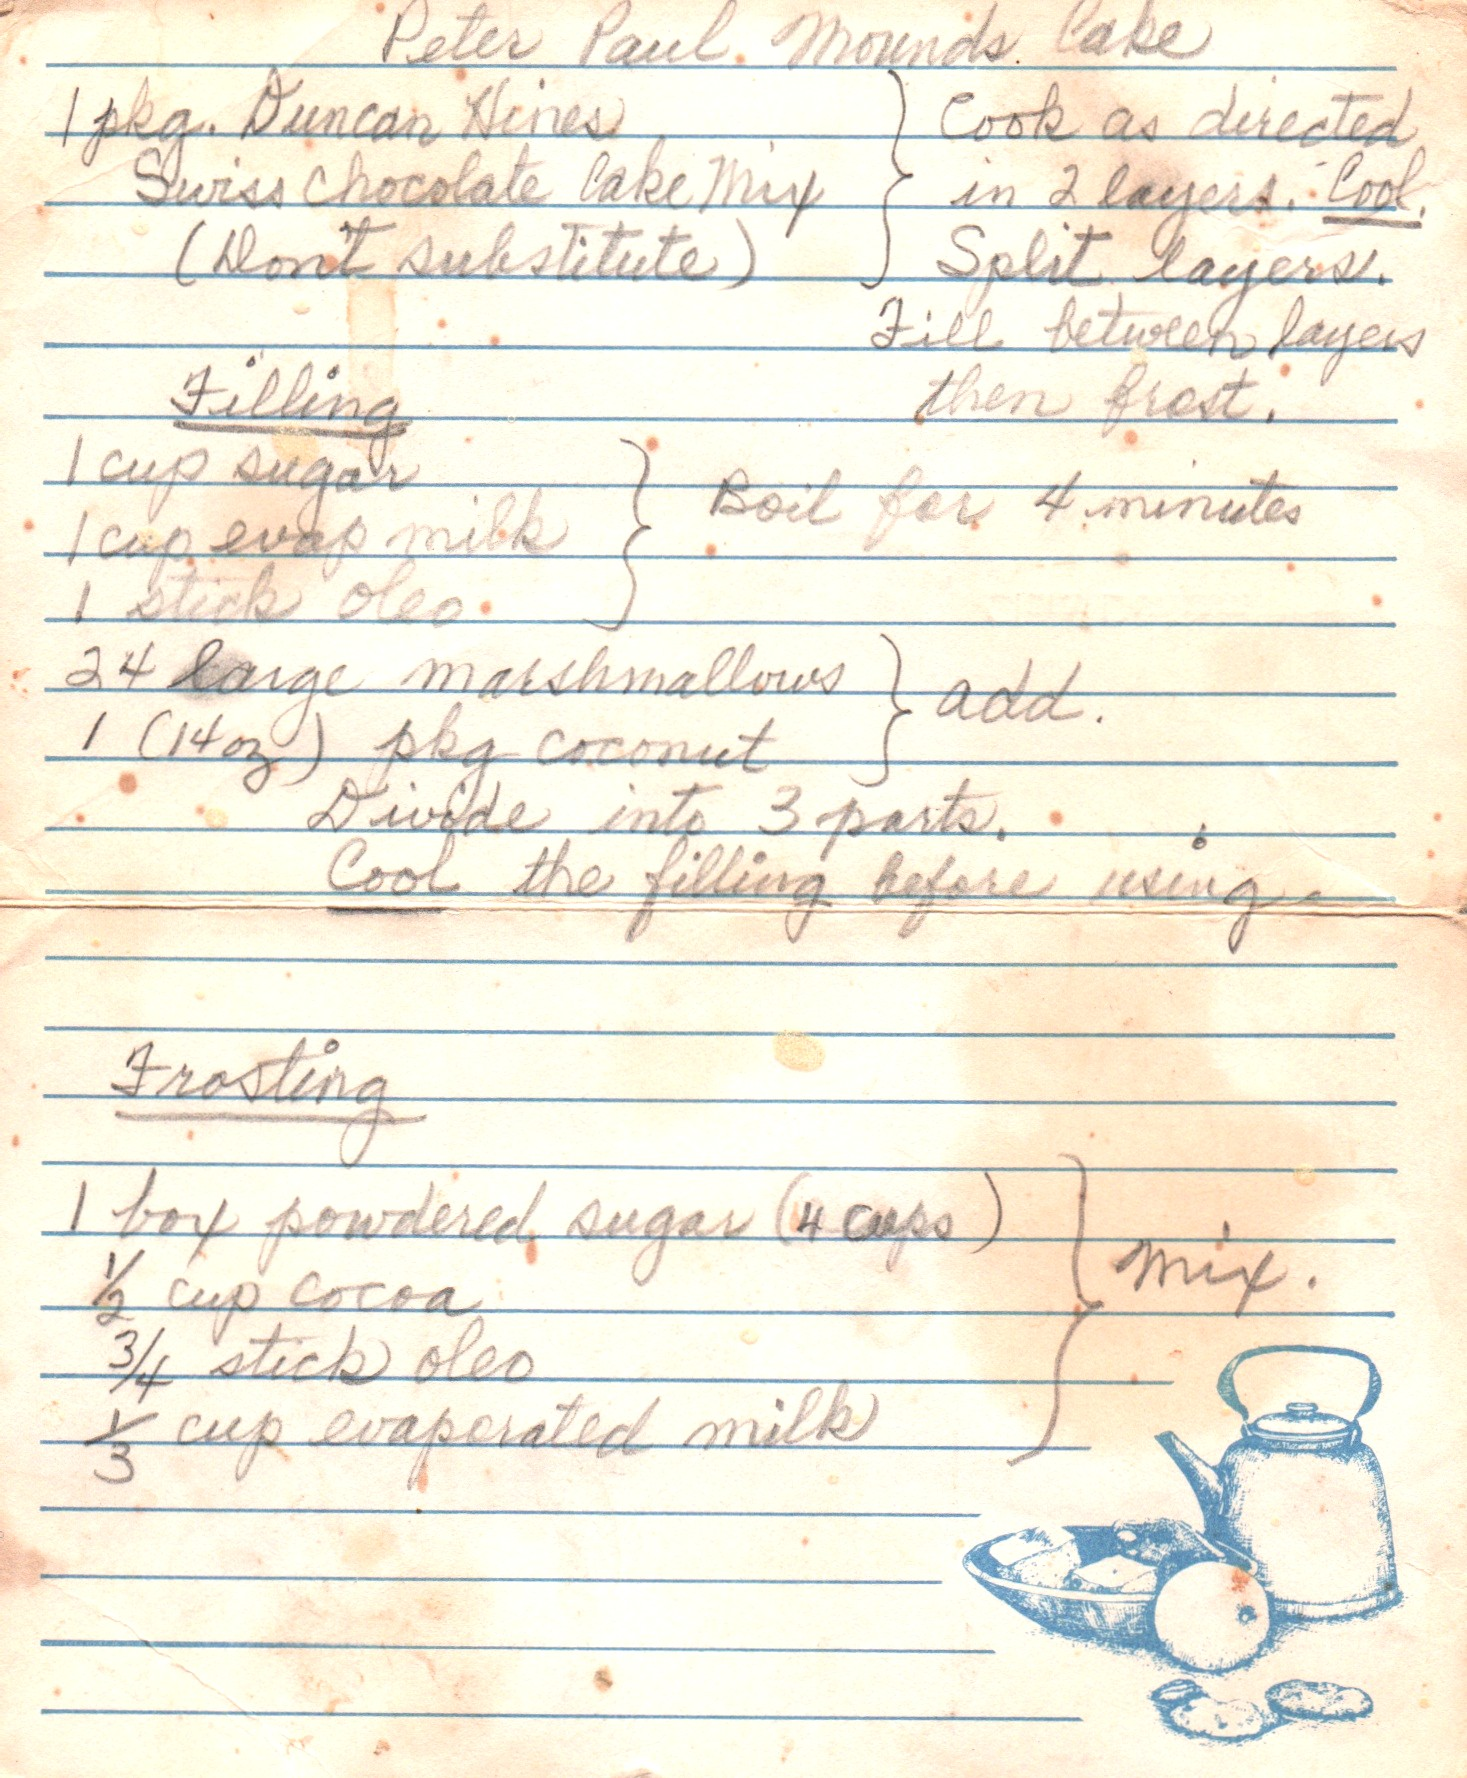 Peter Paul Mounds Cake
1 pkg. Duncan Hines
Swiss Chocolate Cake Mix
(Don't substitute)
Cook as directed
in 2 layers. Cool.
Split layers.
Fill between layers
then frost.
Filling
1 cup sugar
1 cup evap milk
1 stick oleo
Boil for 4 minutes
24 large marshmallows
1 (14 oz) pkg coconut
add.
Divide into 3 parts.
Cool the filling before using.
Frosting
1 box powdered sugar (4 cups)
1/2 cup cocoa
3/4 stick oleo
1/3 cup evaporated milk
Mix.